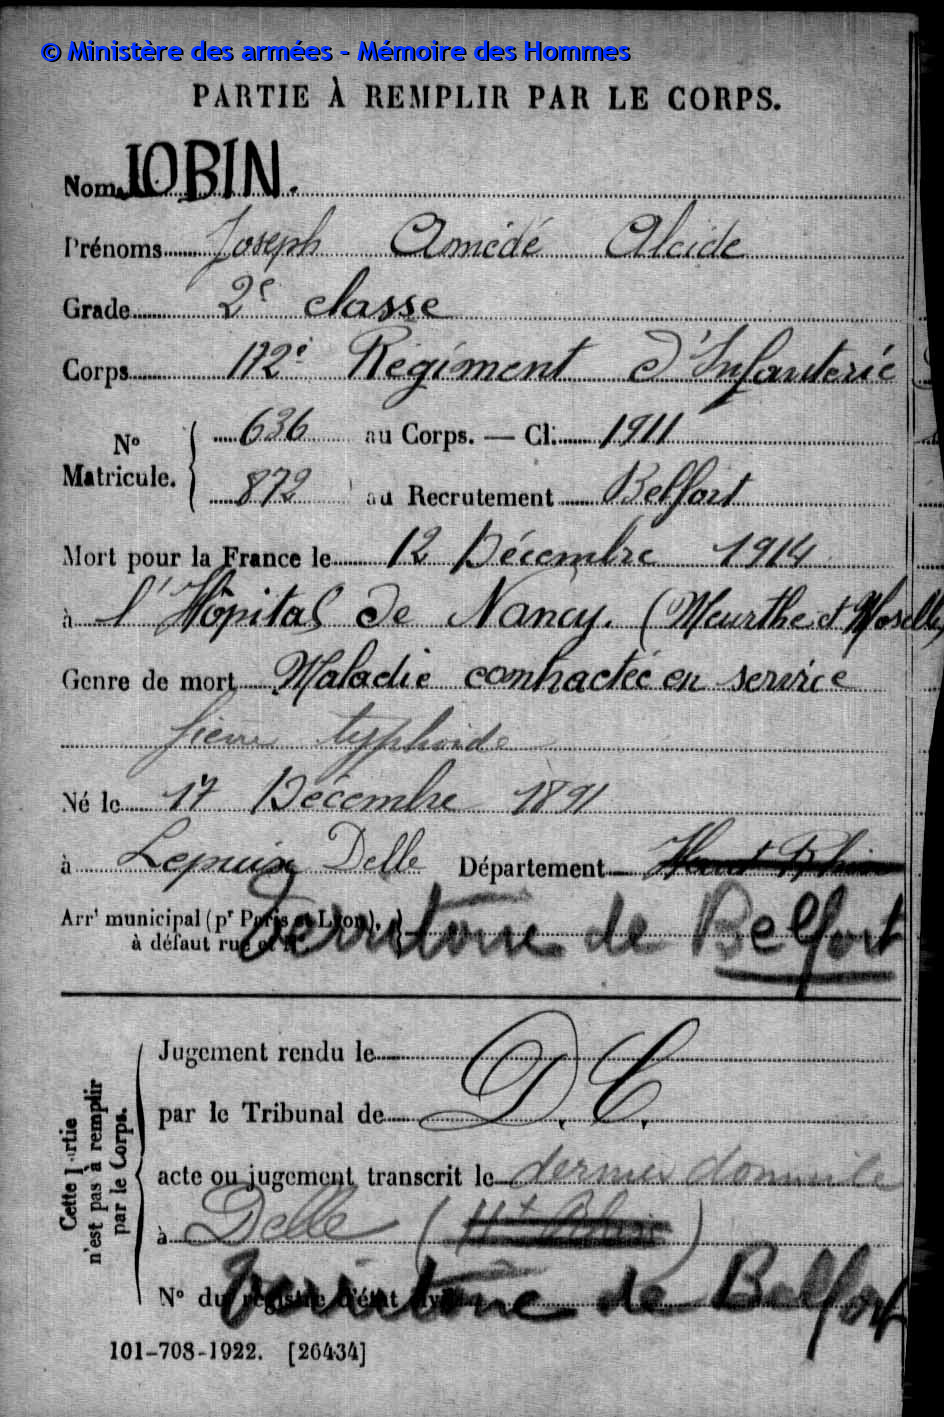 © Ministère des armées - Mémoire des Hommes
PARTIE À REMPLIR PAR LE CORPS.
Nom JOBIN.
Prénoms Joseph Amédé Alcide
Grade 2e classe
Corps 172e Régiment d'Infanterie
N° Matricule. 636 au Corps. — Cl. 1911
872 au Recrutement Belfort
Mort pour la France le 12 Décembre 1914
à l'Hôpital de Nancy. (Meurthe et Moselle)
Genre de mort Maladie contractée en service
fièvre typhoïde
Né le 17 Décembre 1891
à Lepuix Delle Département Haut Rhin
Arrt municipal (pr Paris et Lyon),
à défaut rue et N°
Territoire de Belfort
Cette partie n'est pas à remplir par le Corps.
Jugement rendu le
par le Tribunal de D. C.
acte ou jugement transcrit le dernier domicile
à Delle (Ht Rhin)
N° du registre d'état civil
Territoire de Belfort
101-708-1922. [26434]